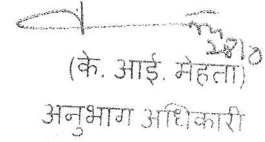 (के. आई. मेहता)
अनुभाग अधिकारी